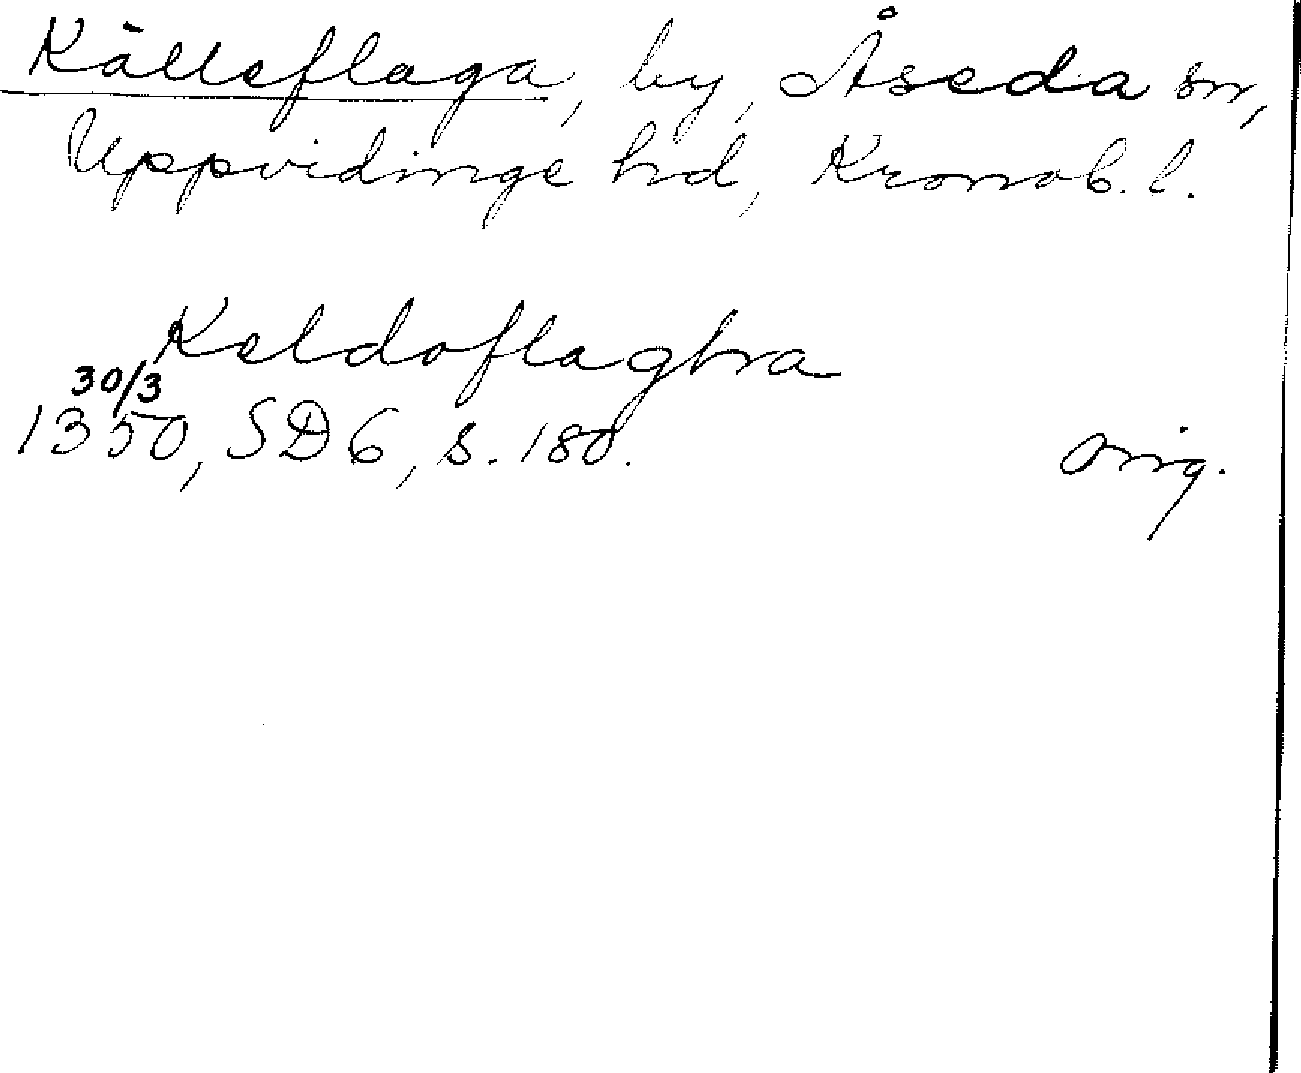 Källeflaga, by, Åseda sn,
Uppvidinge hd, Kronob. l.
Keldoflaghra
30/3
1350, SD 6, s. 180. orig.